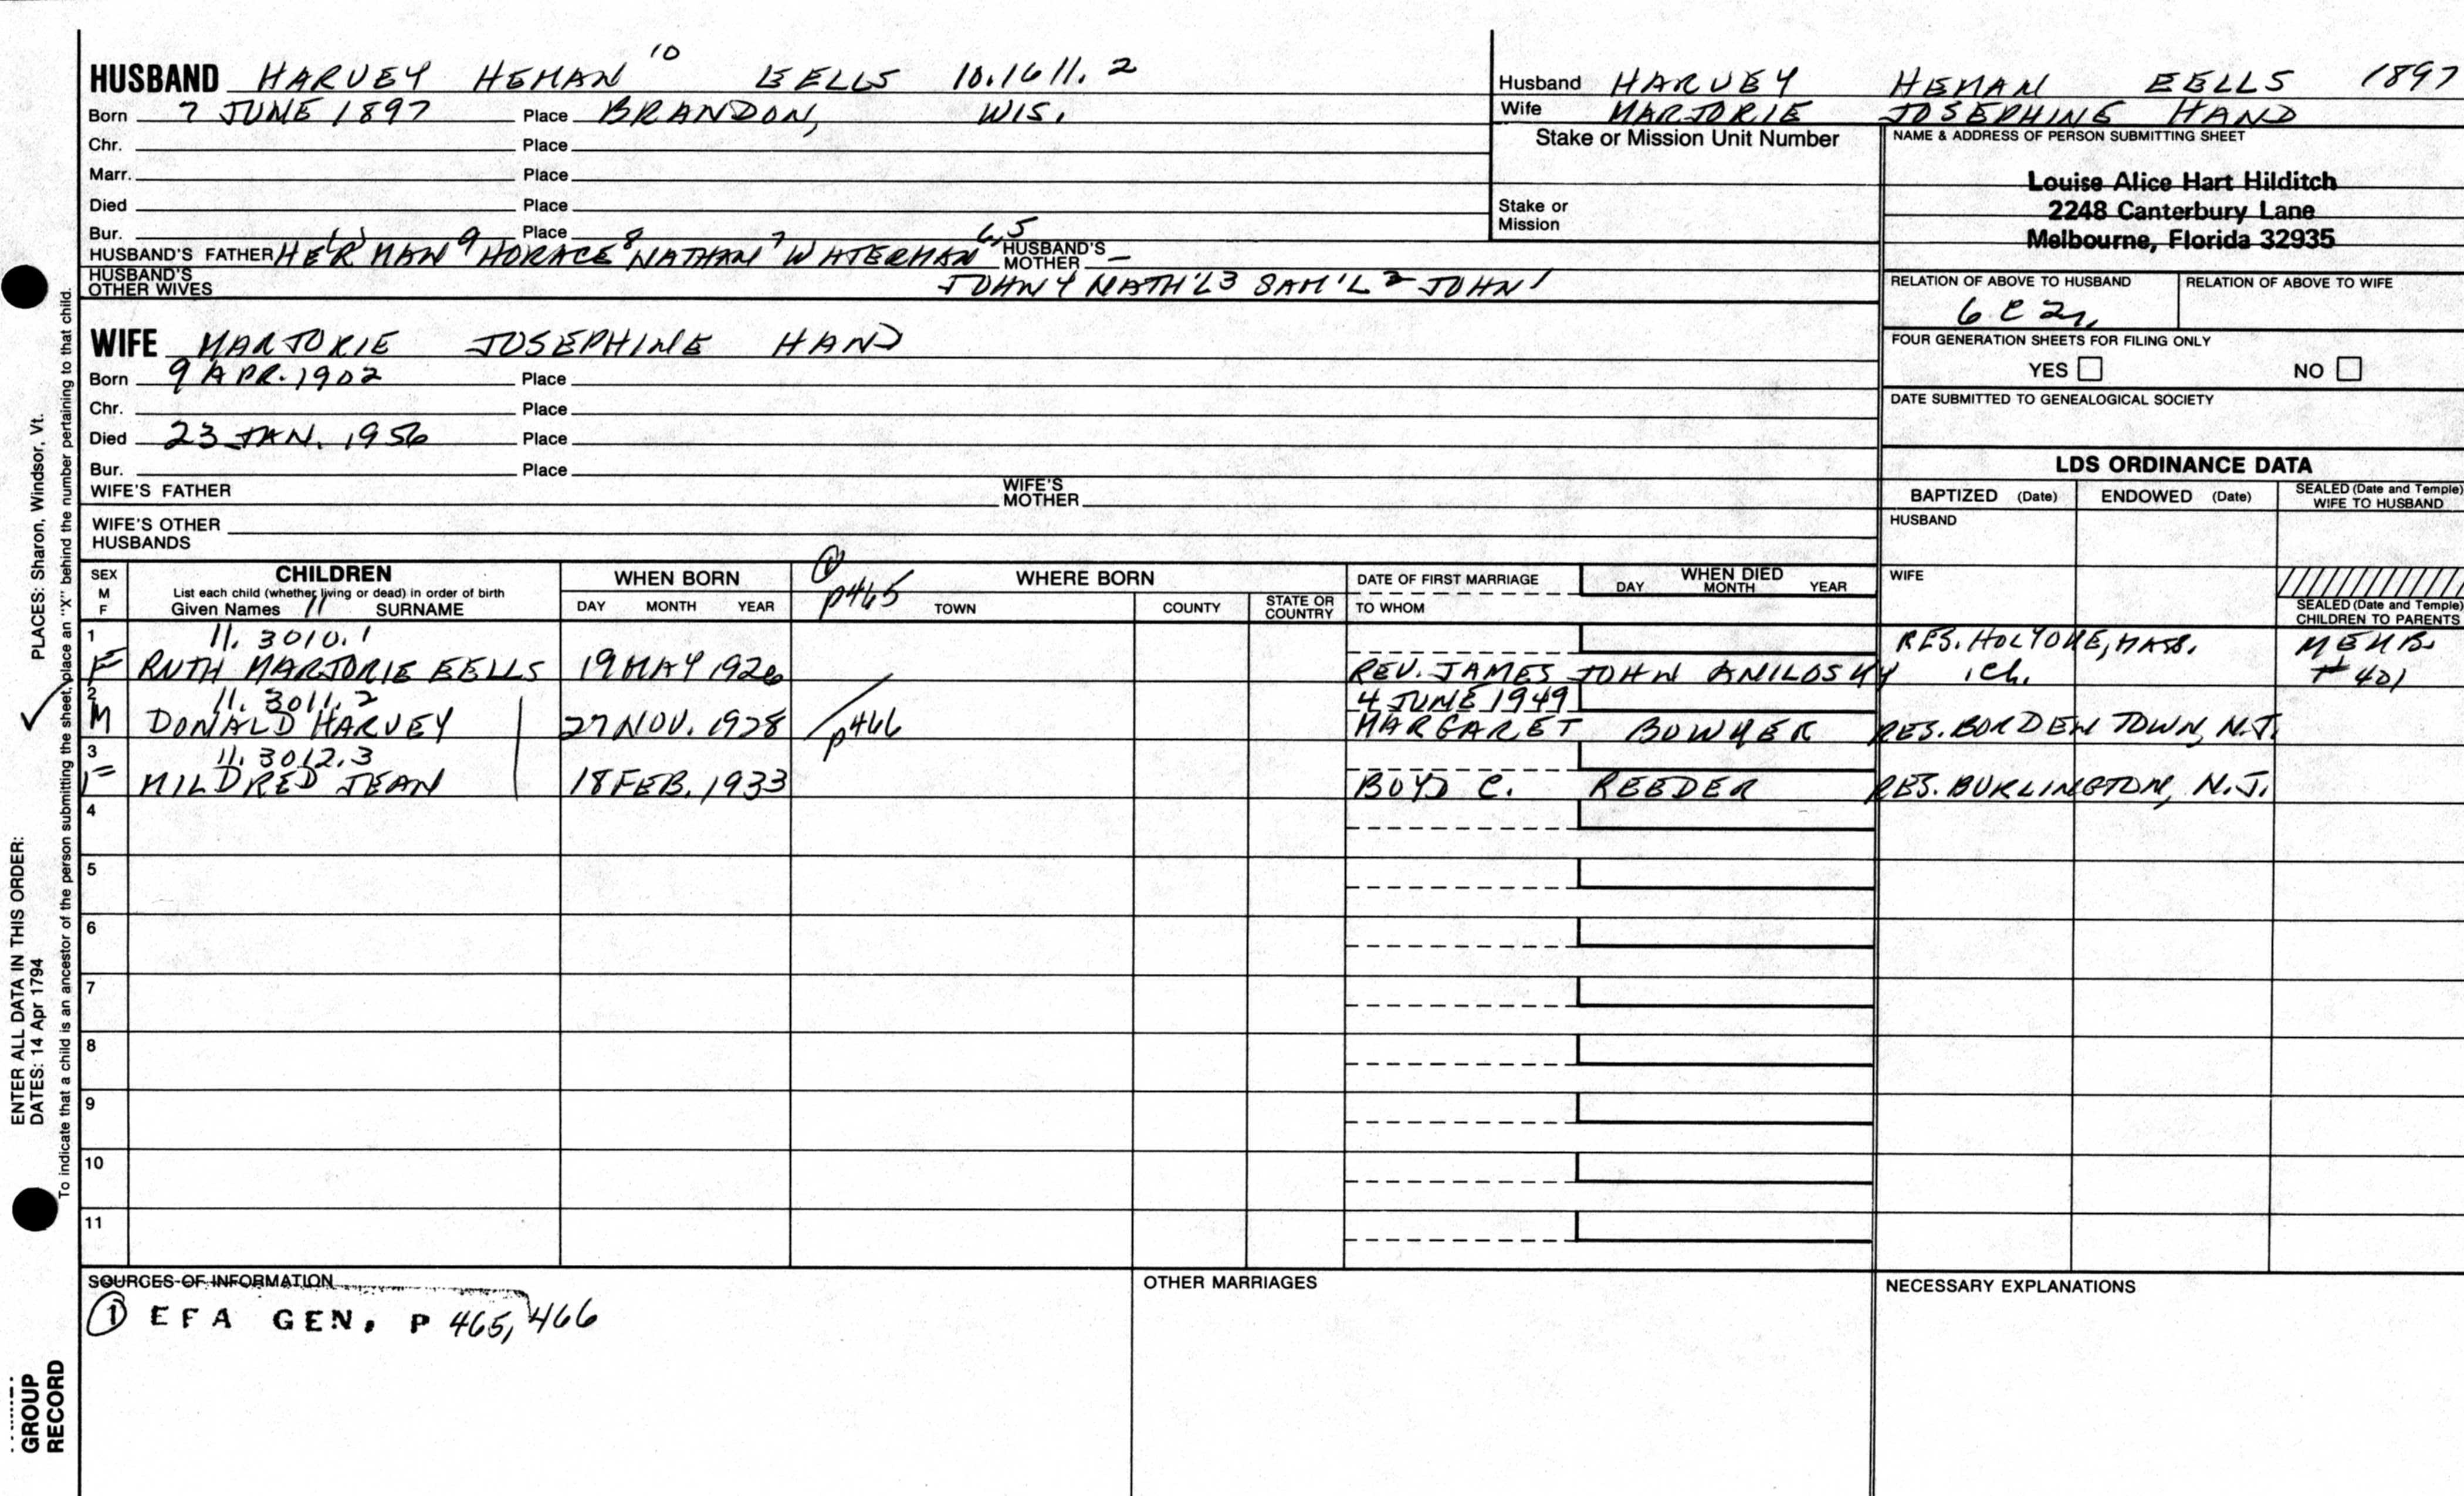 HUSBAND HARVEY HEMAN 10 EELLS 10.1611.2
Born 7 JUNE 1897 Place BRANDON, WIS.
Chr. Place
Marr. Place
Died Place
Bur. Place
HUSBAND'S FATHER HERMAN 9 HORACE 8 NATHAN 7 WATERMAN 6,5 HUSBAND'S MOTHER —
HUSBAND'S OTHER WIVES JOHN 4 NATH'L 3 SAM'L 2 JOHN 1
WIFE MARJORIE JOSEPHINE HAND
Born 9 APR. 1902 Place
Chr. Place
Died 23 JAN. 1956 Place
Bur. Place
WIFE'S FATHER WIFE'S MOTHER
WIFE'S OTHER HUSBANDS
Husband HARVEY HEMAN EELLS 1897
Wife MARJORIE JOSEPHINE HAND
Stake or Mission Unit Number
Stake or Mission
NAME & ADDRESS OF PERSON SUBMITTING SHEET
Louise Alice Hart Hilditch
2248 Canterbury Lane
Melbourne, Florida 32935
RELATION OF ABOVE TO HUSBAND RELATION OF ABOVE TO WIFE
6 C 2r.
FOUR GENERATION SHEETS FOR FILING ONLY
YES NO
DATE SUBMITTED TO GENEALOGICAL SOCIETY
LDS ORDINANCE DATA
BAPTIZED (Date) ENDOWED (Date) SEALED (Date and Temple) WIFE TO HUSBAND
HUSBAND
WIFE
SEALED (Date and Temple) CHILDREN TO PARENTS
SEX M F
CHILDREN
List each child (whether living or dead) in order of birth
Given Names 11 SURNAME
WHEN BORN
DAY MONTH YEAR
1 p465
WHERE BORN
TOWN COUNTY STATE OR COUNTRY
DATE OF FIRST MARRIAGE
TO WHOM
WHEN DIED
DAY MONTH YEAR
1 11.3010.1 RES. HOLYOKE, MASS. MEMB.
F RUTH MARJORIE EELLS 19 MAY 1926 REV. JAMES JOHN ANILOSKY 1 Ch. #401
2 11.3011.2 4 JUNE 1949
M DONALD HARVEY 27 NOV. 1928 p466 MARGARET BOWMER RES. BORDEN TOWN, N.J.
3 11.3012.3
F MILDRED JEAN 18 FEB. 1933 BOYD C. REEDER RES. BURLINGTON, N.J.
4
5
6
7
8
9
10
11
SOURCES OF INFORMATION
1 EFA GEN. P 465, 466
OTHER MARRIAGES
NECESSARY EXPLANATIONS
ENTER ALL DATA IN THIS ORDER: PLACES: Sharon, Windsor, Vt.
DATES: 14 Apr 1794
To indicate that a child is an ancestor of the person submitting the sheet, place an "X" behind the number pertaining to that child.
GROUP
RECORD